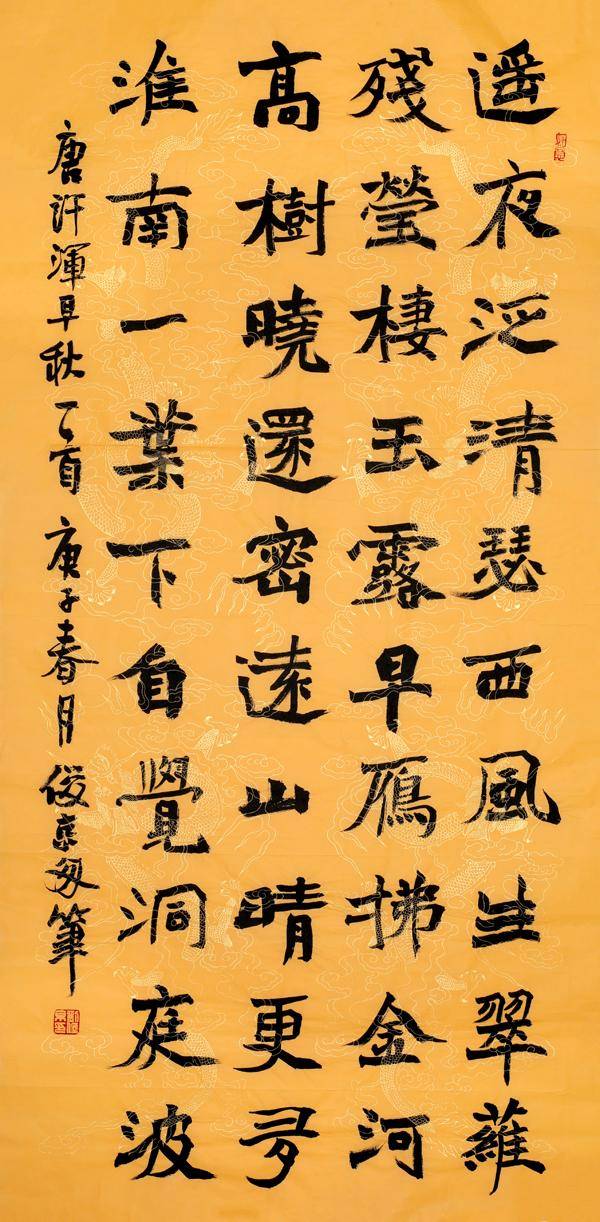 遥夜泛清瑟西風生翠蘿
殘螢棲玉露早鴈拂金河
高樹曉還密遠山晴更多
淮南一葉下自覺洞庭波
唐許渾早秋一首庚子春月俊京筆